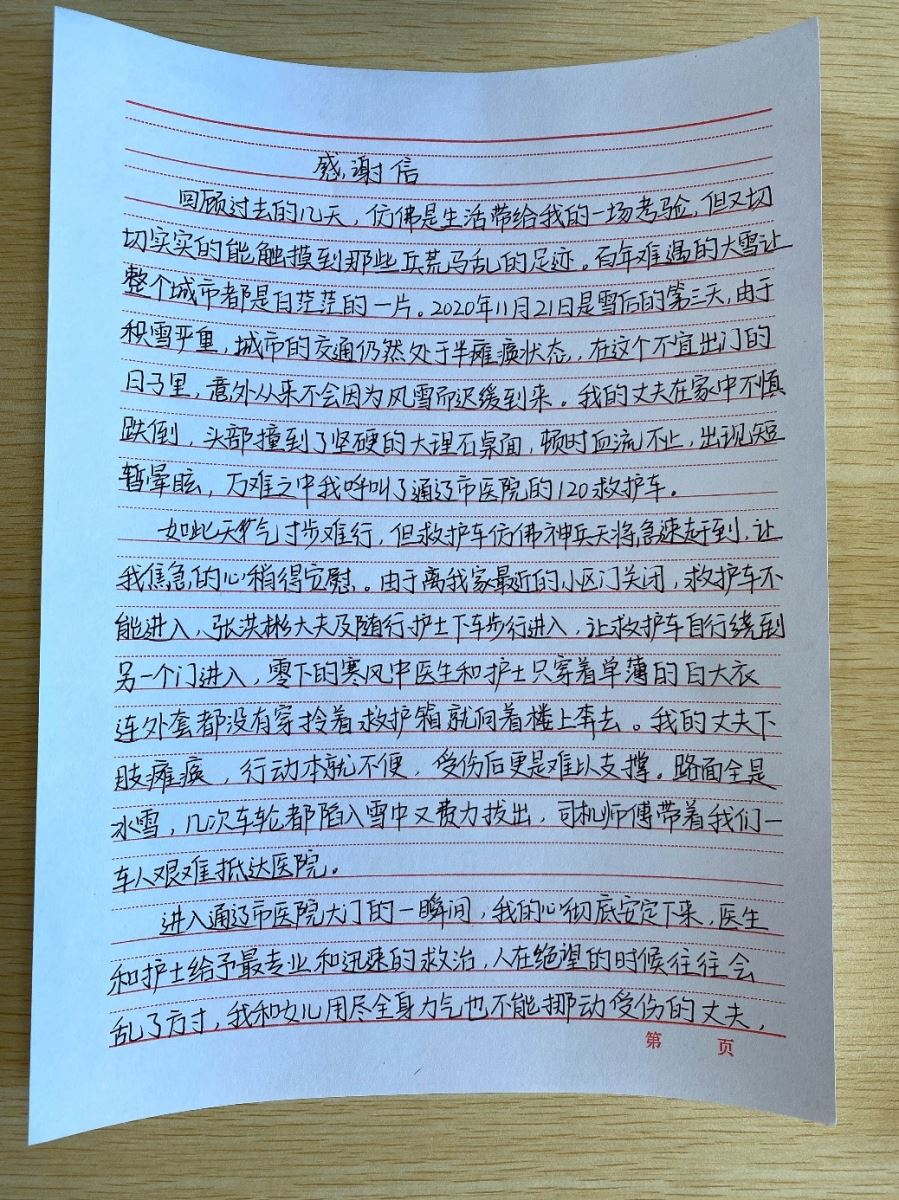 感谢信
回顾过去的几天，仿佛是生活带给我的一场考验，但又切
切实实的能触摸到那些兵荒马乱的足迹。百年难遇的大雪让
整个城市都是白茫茫的一片。2020年11月21日是雪后的第三天，由于
积雪严重，城市的交通仍然处于半瘫痪状态，在这个不宜出门的
日子里，意外从来不会因为风雪而迟缓到来。我的丈夫在家中不慎
跌倒，头部撞到了坚硬的大理石桌面，顿时血流不止，出现短
暂晕眩，万难之中我呼叫了通辽市医院的120救护车。
如此天气寸步难行，但救护车仿佛神兵天将急速赶到，让
我焦急的心稍得安慰。由于离我家最近的小区门关闭，救护车不
能进入，张洪彬大夫及随行护士下车步行进入，让救护车自行绕到
另一个门进入，零下的寒风中医生和护士只穿着单薄的白大衣
连外套都没有穿拎着救护箱就向着楼上奔去。我的丈夫下
肢瘫痪，行动本就不便，受伤后更是难以支撑。路面全是
冰雪，几次车轮都陷入雪中又费力拔出，司机师傅带着我们一
车人艰难抵达医院。
进入通辽市医院大门的一瞬间，我的心彻底安定下来，医生
和护士给予最专业和迅速的救治，人在绝望的时候往往会
乱了方寸，我和女儿用尽全身力气也不能挪动受伤的丈夫，
第 页